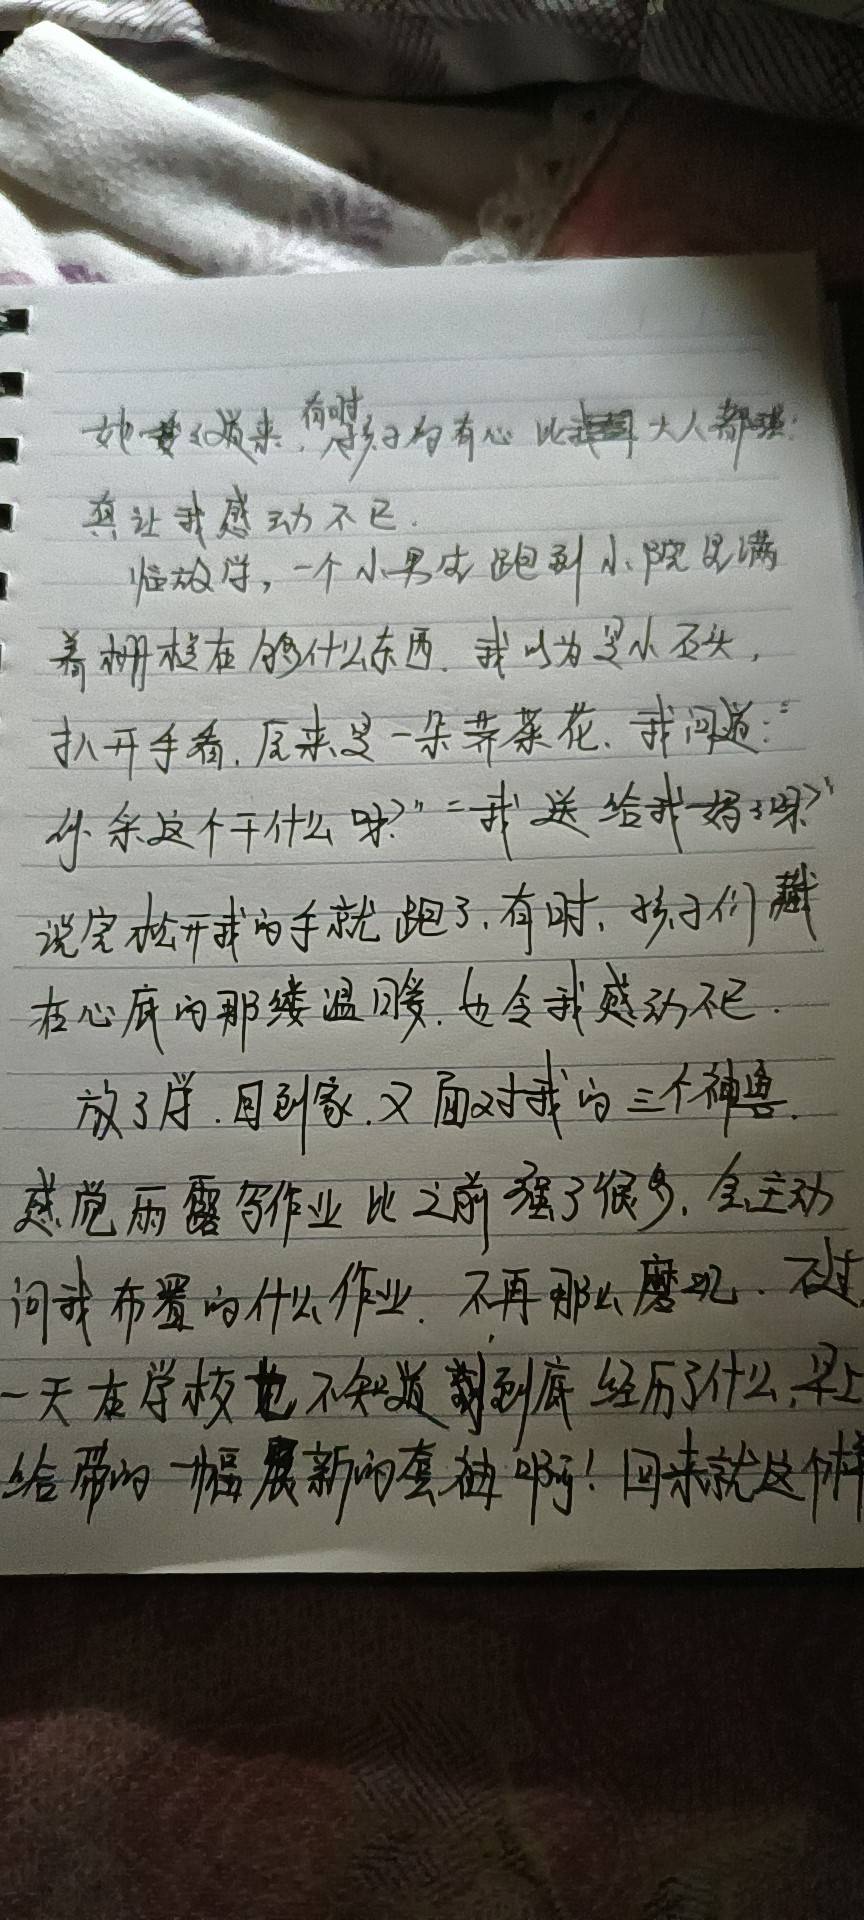 她娓娓道来，有时孩子的有心比我们大人都强；
真让我感动不已.
临放学，一个小男生跑到小院里满
着栅栏在够什么东西. 我以为是小石头，
扒开手看，原来是一朵荠菜花. 我问道："
你采这个干什么呀？" "我送给我妈妈呀？"
说完松开我的手就跑了. 有时，孩子们藏
在心底的那缕温暖，也令我感动不已.
放了学，回到家，又面对我的三个神兽.
感觉雨露写作业比之前强了很多，会主动
问我布置的什么作业. 不再那么磨叽. 不过，
一天在学校也不知道到底经历了什么，早上
给带的一幅展新的套袖啊！回来就这个样